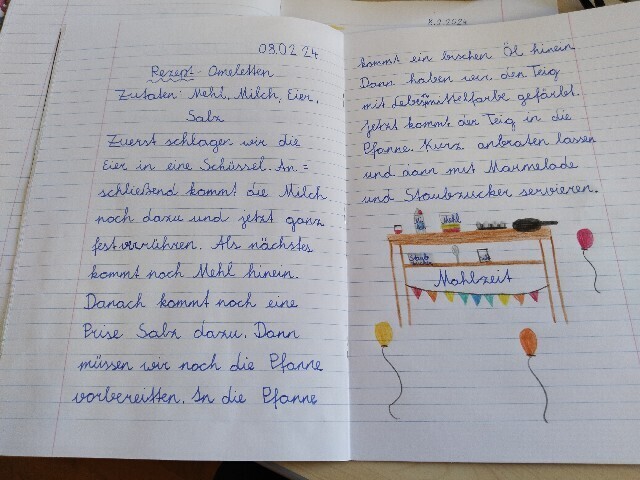 03.02.24
Rezept - Omeletten
Zutaten Mehl, Milch, Eier,
Salz
Zuerst schlagen wir die
Eier in eine Schüssel. An=
schließend kommt die Milch
noch dazu und jetzt ganz
fest verrühren. Als nächstes
kommt noch Mehl hinein.
Danach kommt noch eine
Prise Salz dazu. Dann
müssen wir noch die Pfanne
vorbereitten. In die Pfanne
8.2.2024
kommt ein bischen Öl hinein
Dann haben wir den Teig
mit Lebensmittelfarbe gefärbt.
Jetzt kommt der Teig in die
Pfanne. Kurz anbraten lassen
und dann mit Marmelade
und Staubzucker servieren.
Mehl
Mahlzeit